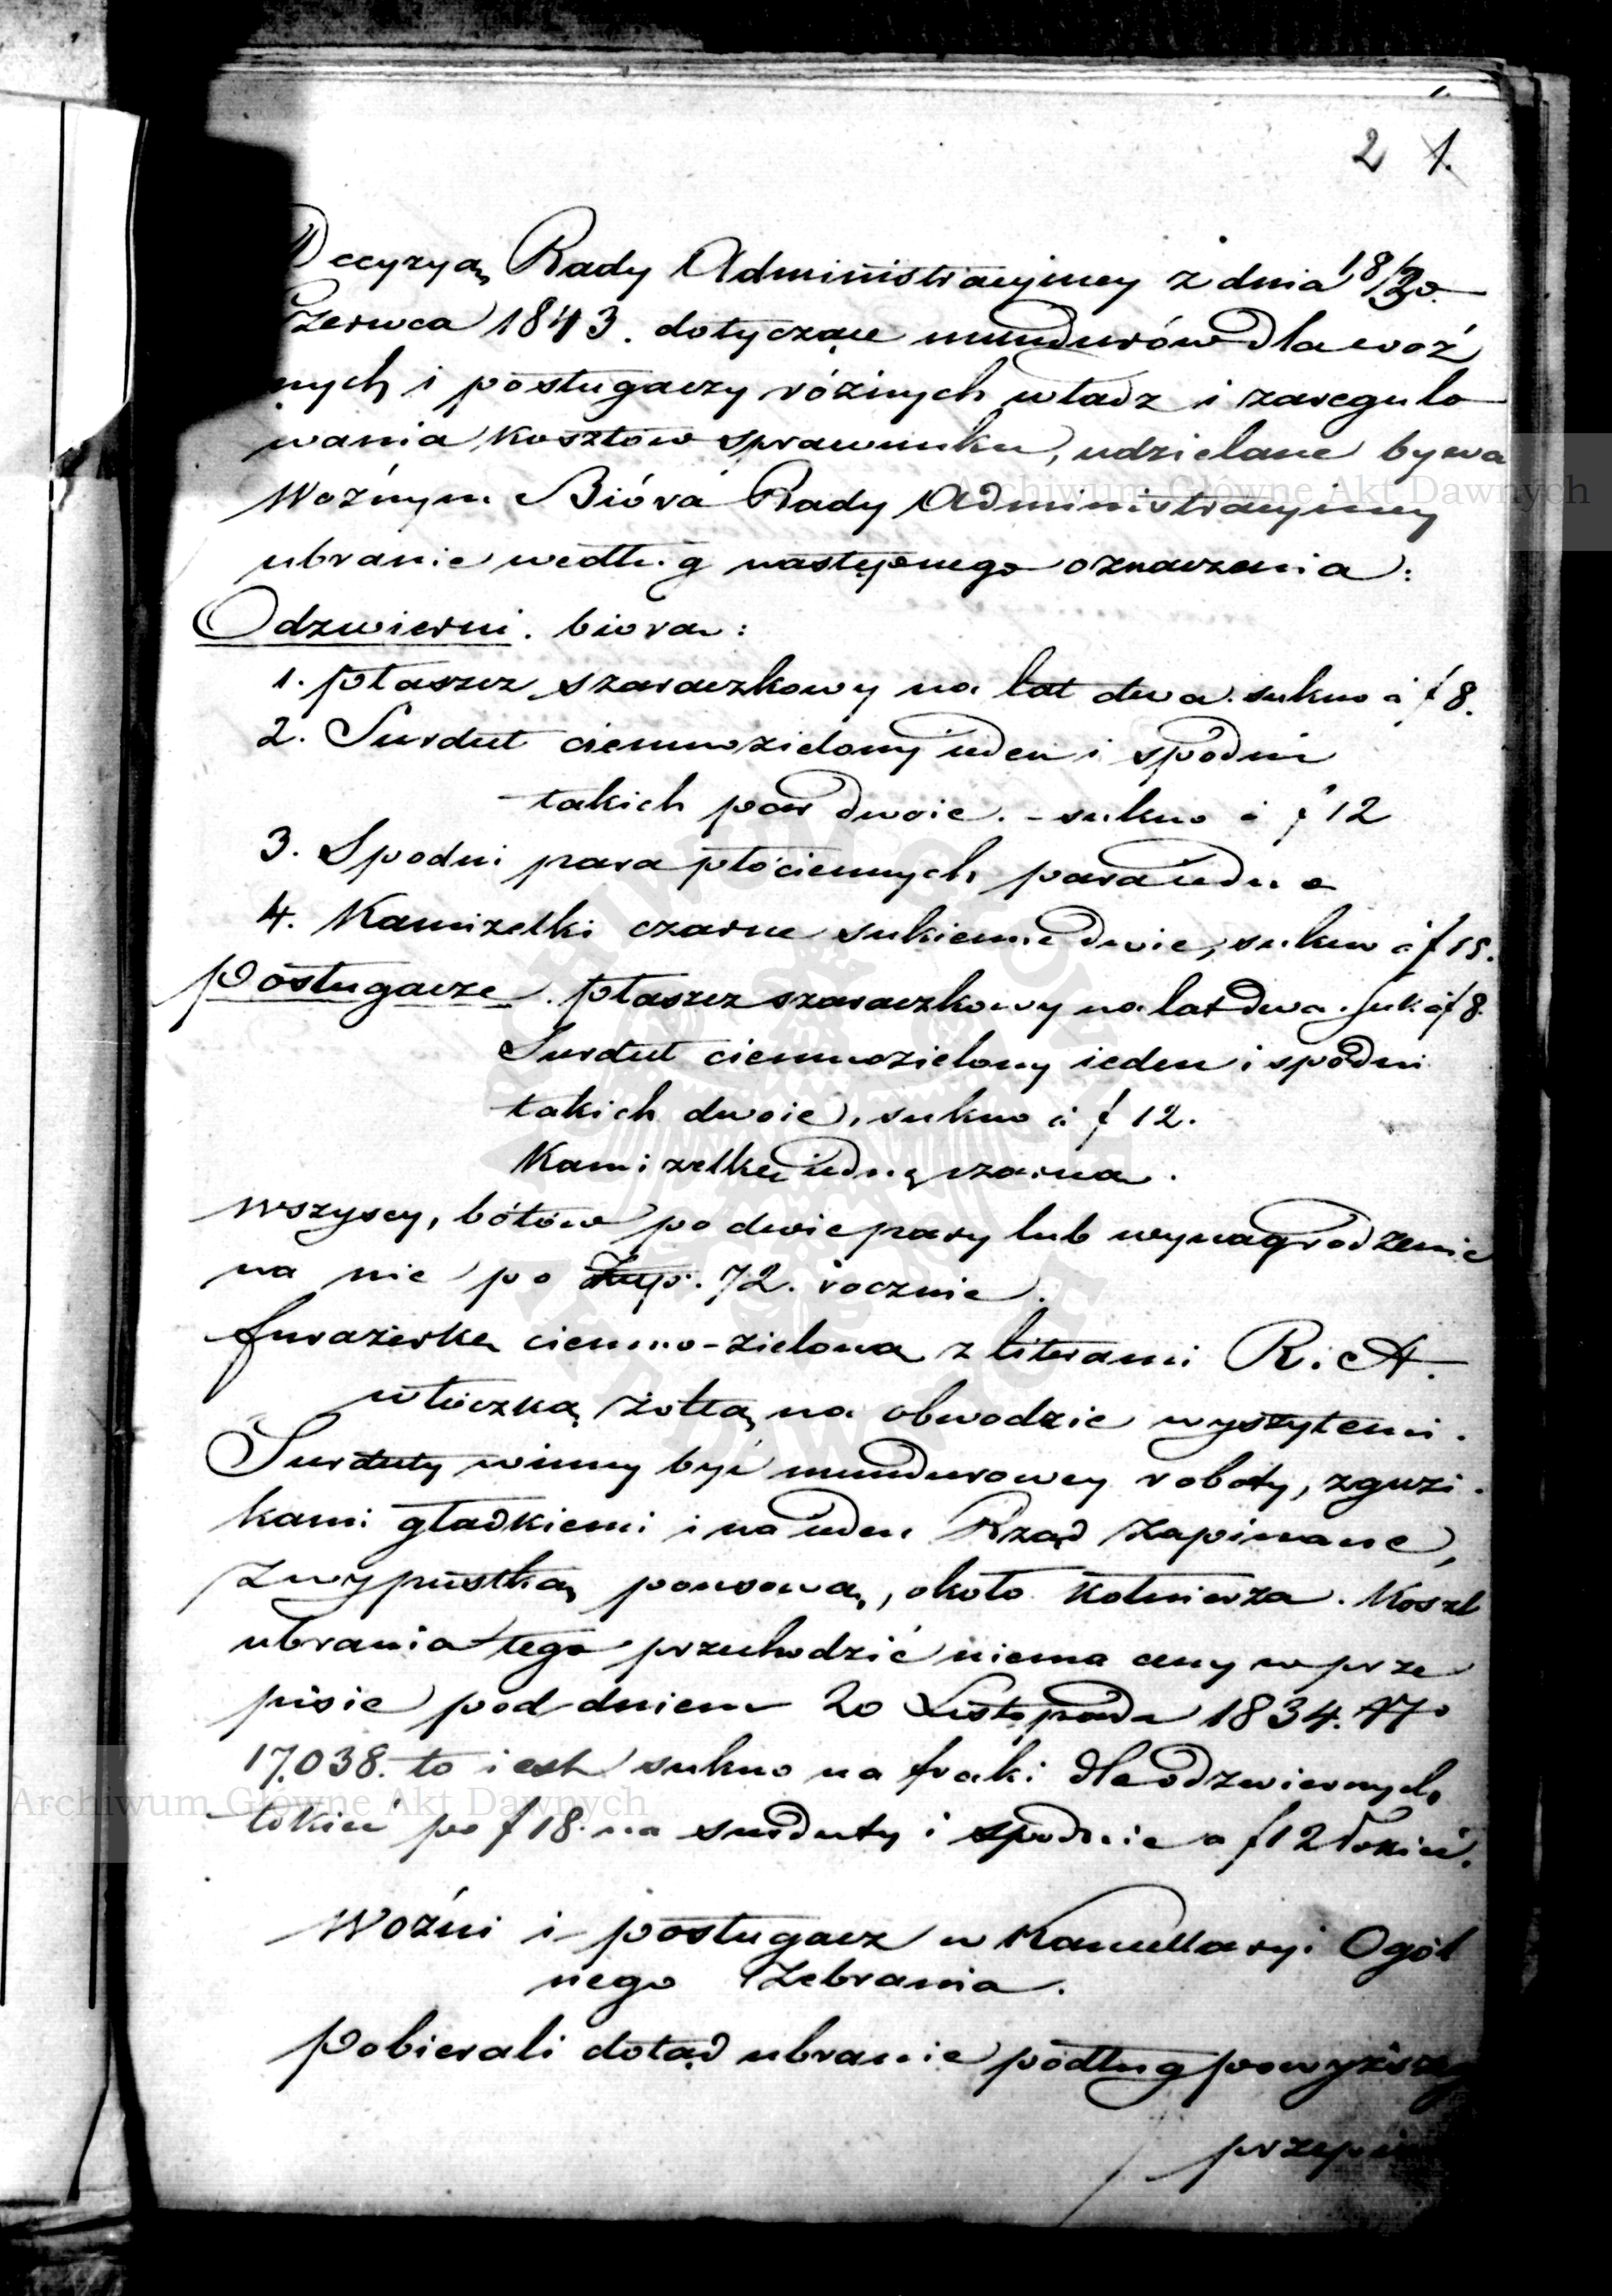 2 1.
Decyzyą Rady Administracyjney z dnia 18/30.
Czerwca 1843. dotyczące mundurów dla woź
nych i posługaczy różnych władz i zaregulo
wania kosztów sprawunku, udzielane bywa
Woźnym Bióra Rady Administracyjney
ubranie według następnego oznaczenia:
Odzwierni. biorą:
1. płaszcz szaraczkowy na lat dwa. sukno à f 8.
2. Surdut ciemnozielony ieden i spodni
takich par dwoie. - sukno à f 12
3. Spodni para płóciennych para iedna
4. Kamizelki czarne sukienne dwie, sukno à f 15.
Posługacze. płaszcz szaraczkowy na lat dwa. suk. à f 8.
Surdut ciemnozielony ieden i spodni
takich dwoie, sukno à f 12.
Kamizelkę iedną czarną.
Wszyscy, bótów po dwie pary lub wynagrodzenie
na nie po Złp. 72. rocznie.
furażerkę ciemno-zieloną z literami R. A.
włóczką żółtą na obwodzie wyszytemi.
Surduty winny być mundurowey roboty, z guzi-
kami gładkiemi i na ieden Rząd zapinane,
z wypustką ponsową, około kołnierza. Koszt
ubrania tego przechodzić niema ceny w prze
pisie pod dniem 20 Listopada 1834. No
17,038. to iest sukno na fraki dla odzwiernych,
łokieć po f 18. na surduty i spodnie a f 12 łokieć.
Woźni i posługacz w Kancellaryi Ogól
nego Zebrania.
Pobierali dotąd ubranie podług powyższego
Archiwum Główne Akt Dawnych
Archiwum Główne Akt Dawnych